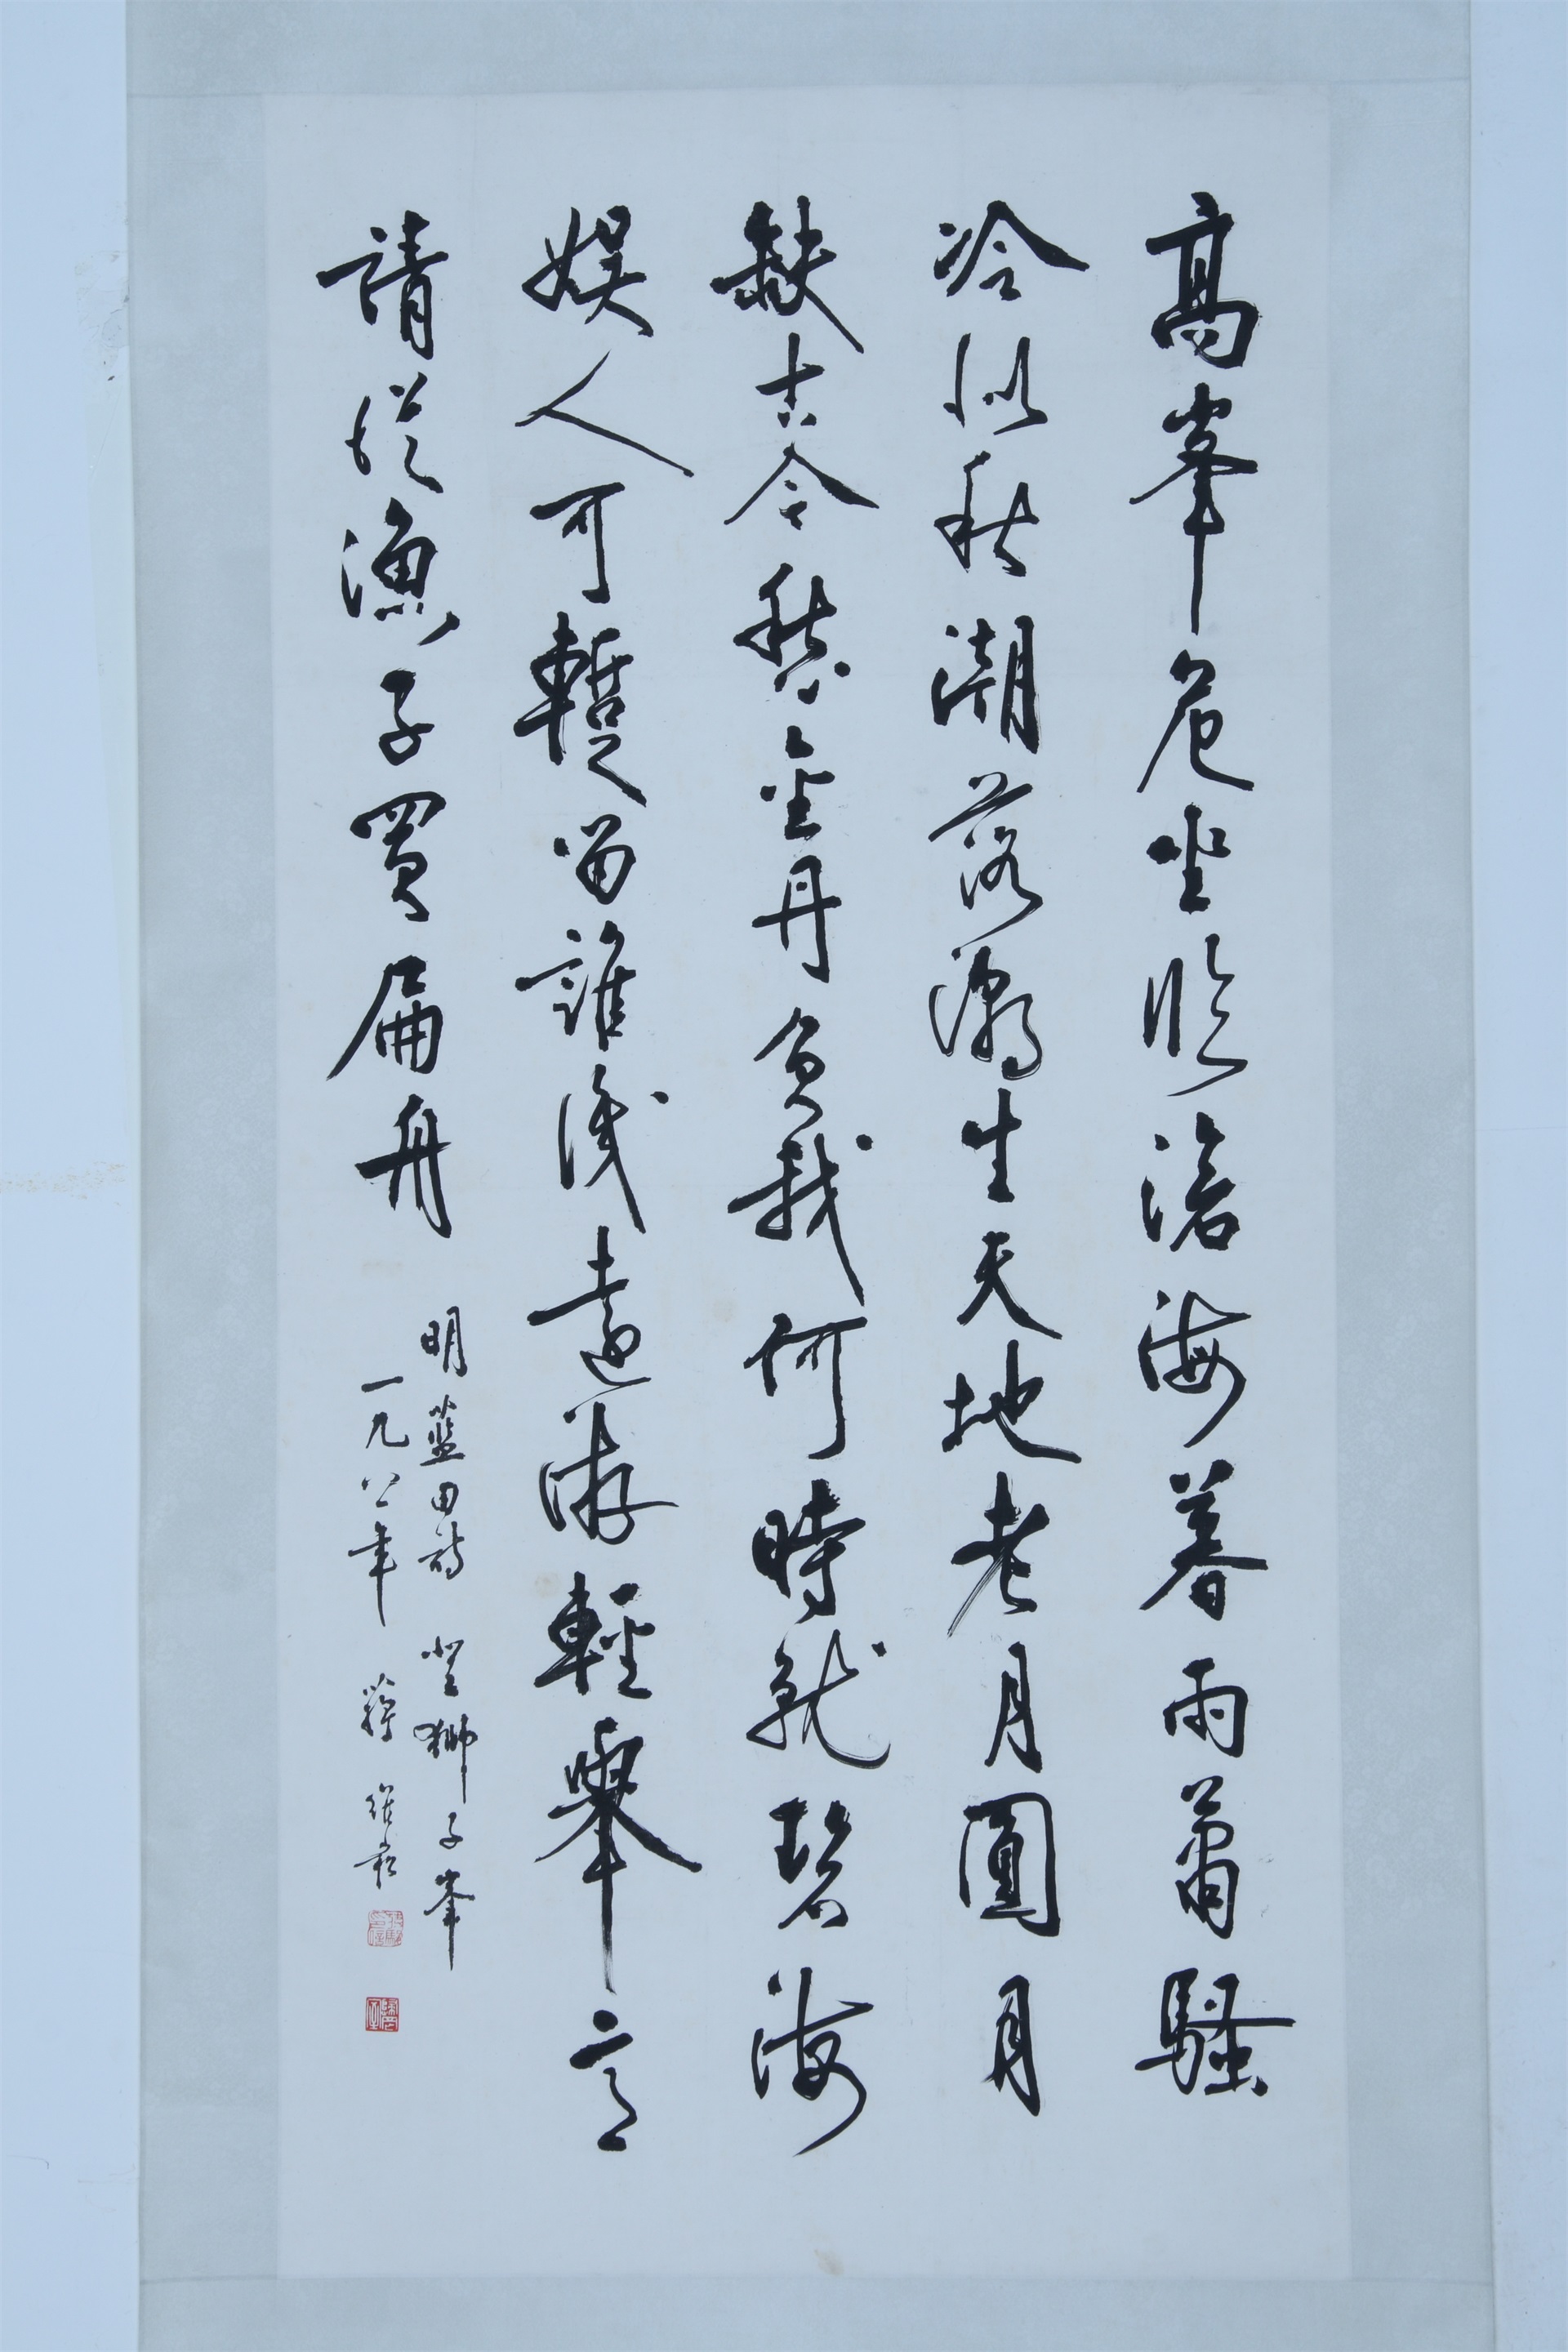 高峯危坐臨滄海暮雨蕭騷
冷似秋潮落潮生天地老月圓月
缺古今愁金丹負我何時就碧海
娛人可暫留誰識遠游輕舉意
請從漁子買扁舟
明藍田詩 登獅子峯
一九八一年 蔣維崧